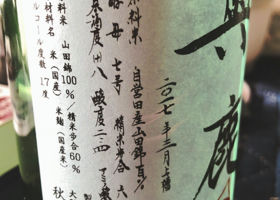 奥鹿
二〇一七年三月上槽
原料米 自営田産山田錦百%
酵母 七号 精米歩合 六
酒度 +八 酸度 二・四 アミノ
料米 山田錦100%/精米歩合60%
材料名 米(国産)米麹(国産米)
ルコール度数17度
秋